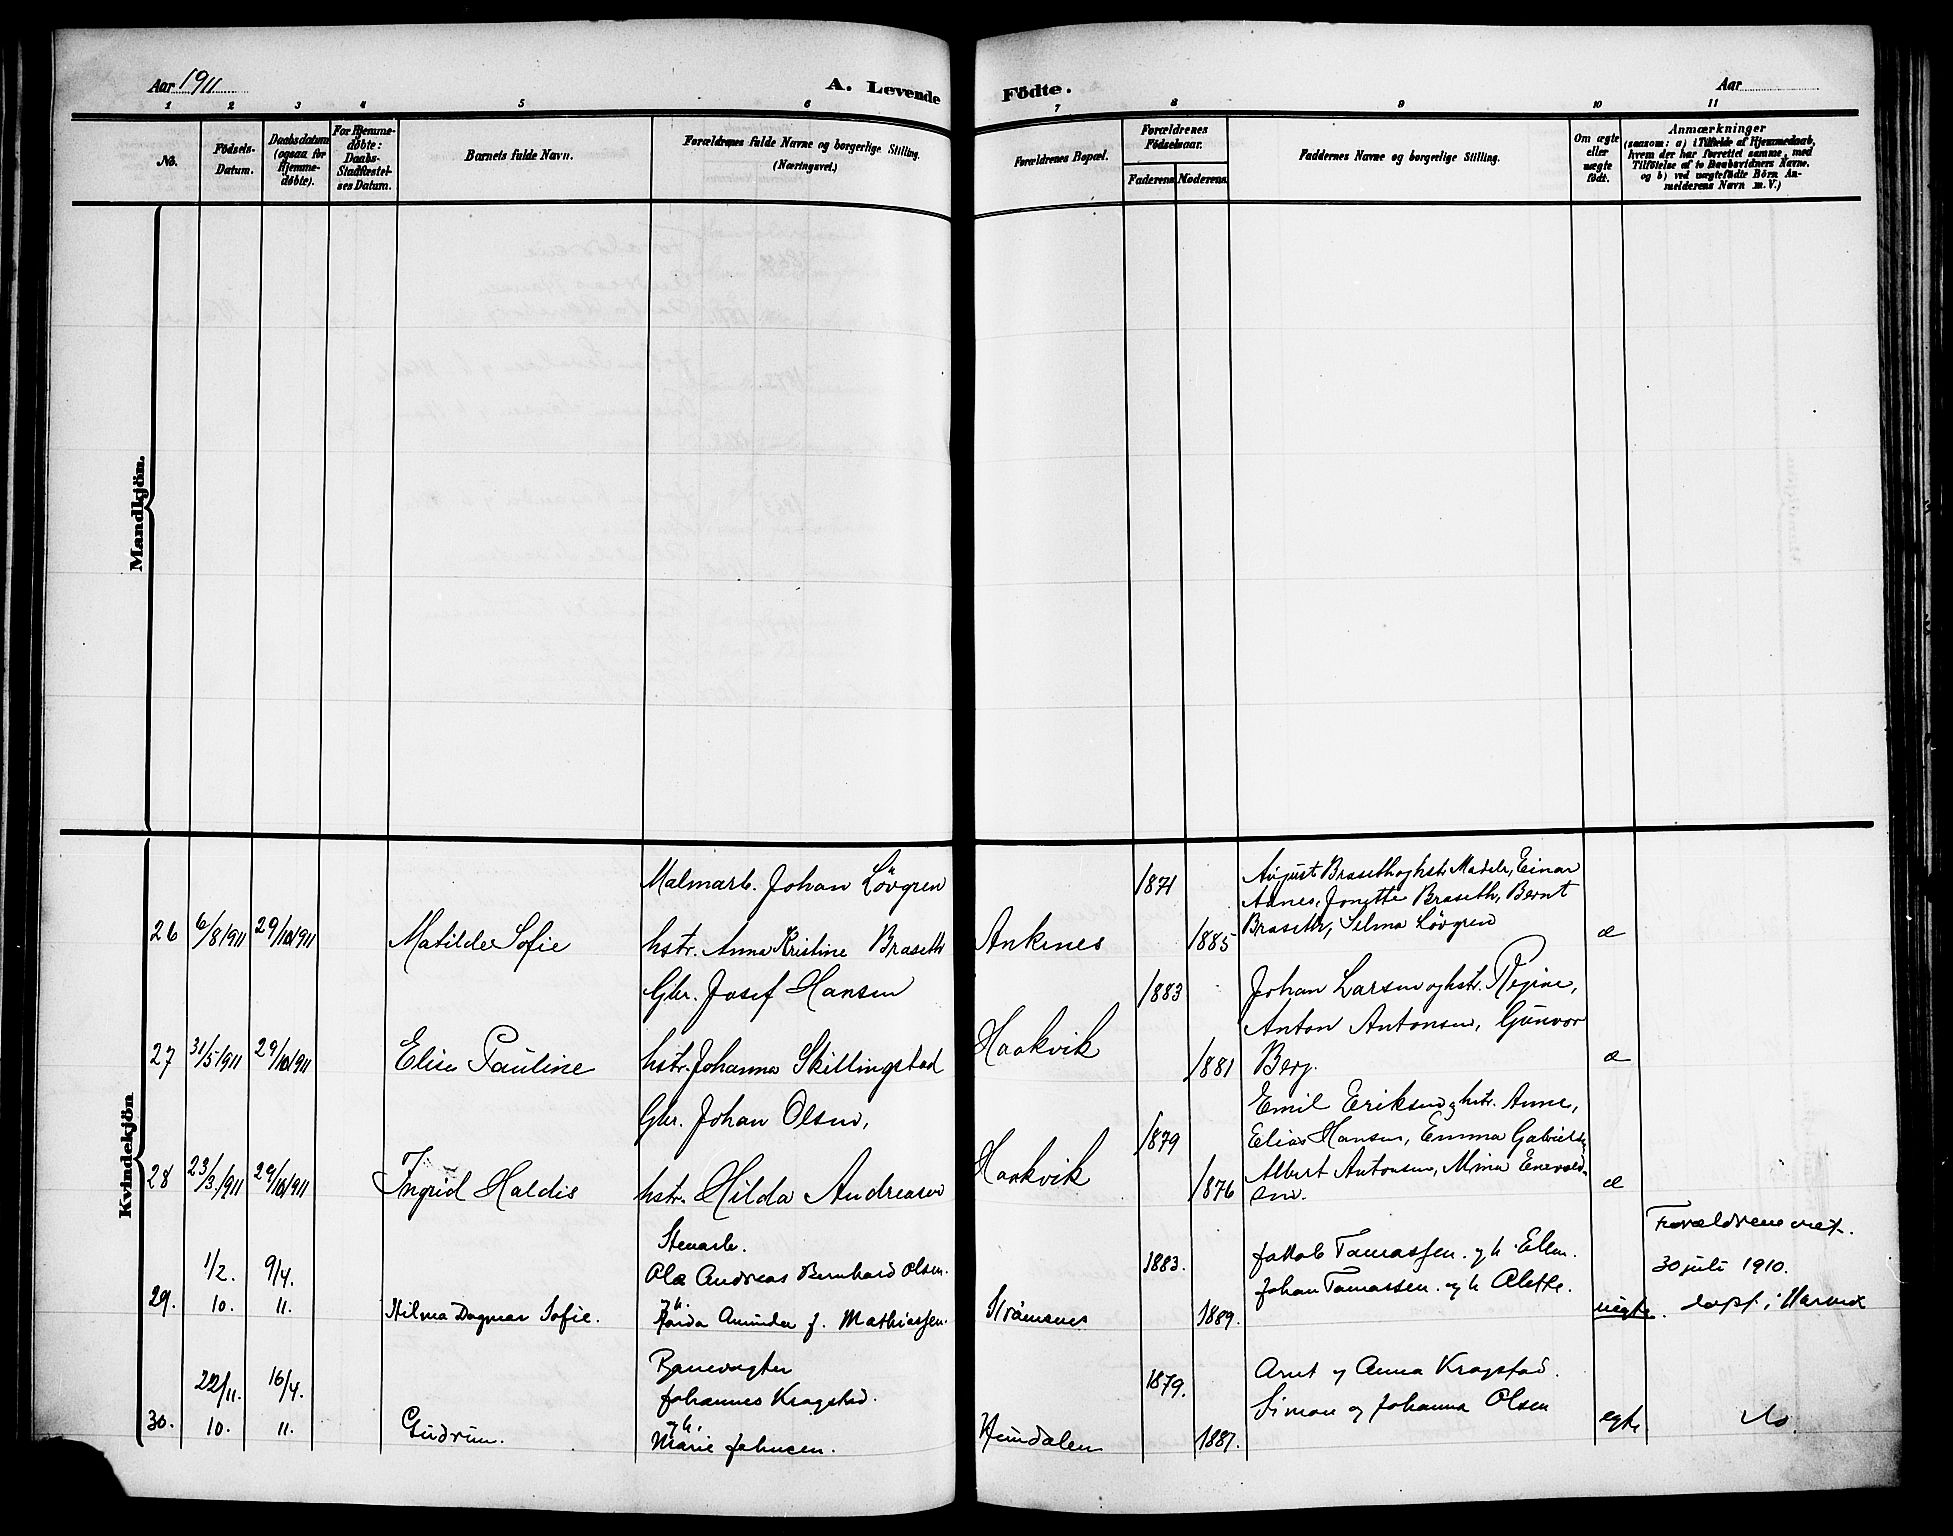 Aar 1911
A. Levende Födte.
Aar
1 2 3 4 5 6 7 8 9 10 11
No.
Födsels-Datum.
Daabsdatum (ogsaa for Hjemme-døbte).
For Hjemme-døbte: Daabs-Stadfæstel-ses Datum.
Barnets fulde Navn.
Forældrenes fulde Navne og borgerlige Stilling. (Næringsvei.)
Forældrenes Bopæl.
Forældrenes Födselsaar.
Faderens Moderens
Faddernes Navne og borgerlige Stilling.
Om ægte eller uægte født.
Anmærkninger
(saasom: a) i Tilfælde af Hjemmedaab,
hvem der har forrettet samme, med
Tilföielse af to Daabsvidners Navne,
og b) ved uægtefödte Börn An-
melderens Navn m. V.)
Mandkjön.
Kvindekjön
Malmarb. Johan Lövgren 1871 August Braseth og hstr. Einar
Jonette Braseth, Bernt
26 6/8 1911 29/10 1911 Matilde Sofie hstr. Anna Kristine Braseth Ankenes 1885 Braseth, Selma Lövgren æ
Gbr. Josef Hansen 1883 Johan Larsen og hstr. Regine,
Anton Antonsen, Gunvor
27 31/5 1911 29/10 1911 Elise Pauline hstr. Johanna Skillingstad Haakvik 1881 Berg. æ
Gbr. Johan Olsen, 1879 Emil Eriksen og hstr. Anne,
Elias Hansen, Emma
28 23/3 1911 29/10 1911 Ingrid Haldis hstr. Hilda Andreasen Haakvik 1876 Albert Antonsen, Mina Enevold-
sen. æ
Stenarb.
1/2. 9/4. Ola Andreas Bernhard Olsen. 1883. Jakob Tomassen. og h. Ellen. Forældrene viet.
30 juli 1910.
29. 10. 11. Hilma Dagmar Sofie. og h. Amunda f. Mathiassen. Strömsnes 1889. Johan Tomassen. og h. Alethe. uegte. døpt i Narvik
Banevogter
22/11. 16/4. Johannes Kragstad. 1879. Arnt og Anna Kragstad.
30. 10. 11. Gudrun. og h. Marie Johnsen. Hundalen 1887. Simon og Johanna Olsen egte